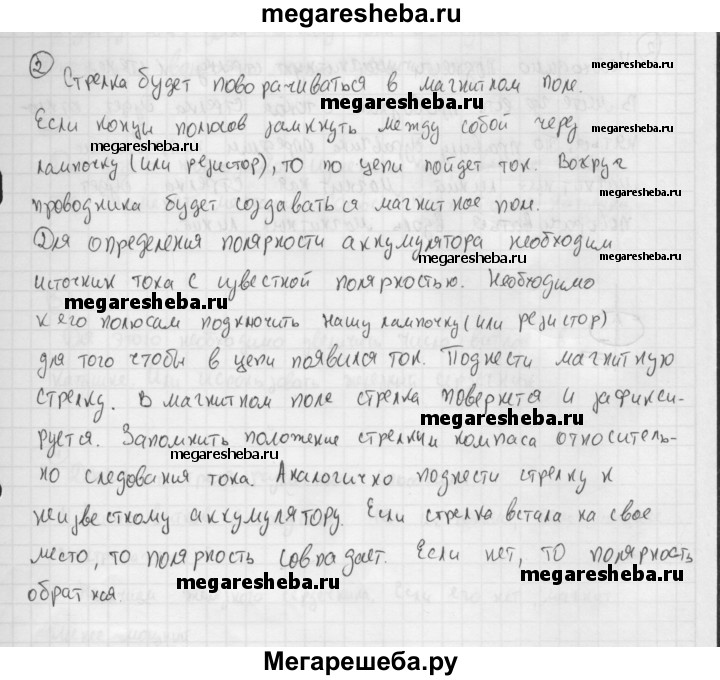 megaresheba.ru
2 Стрелка будет поворачиваться в магнитном поле.
megaresheba.ru
megaresheba.ru
Если концы полюсов замкнуть между собой через
megaresheba.ru
megaresheba.ru
лампочку (или резистор), то по цепи пойдет ток. Вокруг
megaresheba.ru
проводника будет создаваться магнитное поле.
Для определения полярности аккумулятора необходим
источник тока с известной полярностью. Необходимо
megaresheba.ru
megaresheba.ru
к его полюсам подключить нашу лампочку (или резистор)
для того чтобы в цепи появился ток. Поднести магнитную
стрелку. В магнитном поле стрелка повернется и зафикси-
megaresheba.ru
руется. Запомнить положение стрелки компаса относитель-
но следования тока. Аналогично поднести стрелку к
неизвестному аккумулятору. Если стрелка встала на свое
место, то полярность совпадает. Если нет, то полярность
megaresheba.ru
megaresheba.ru
обратная.
Мегарешеба.ру